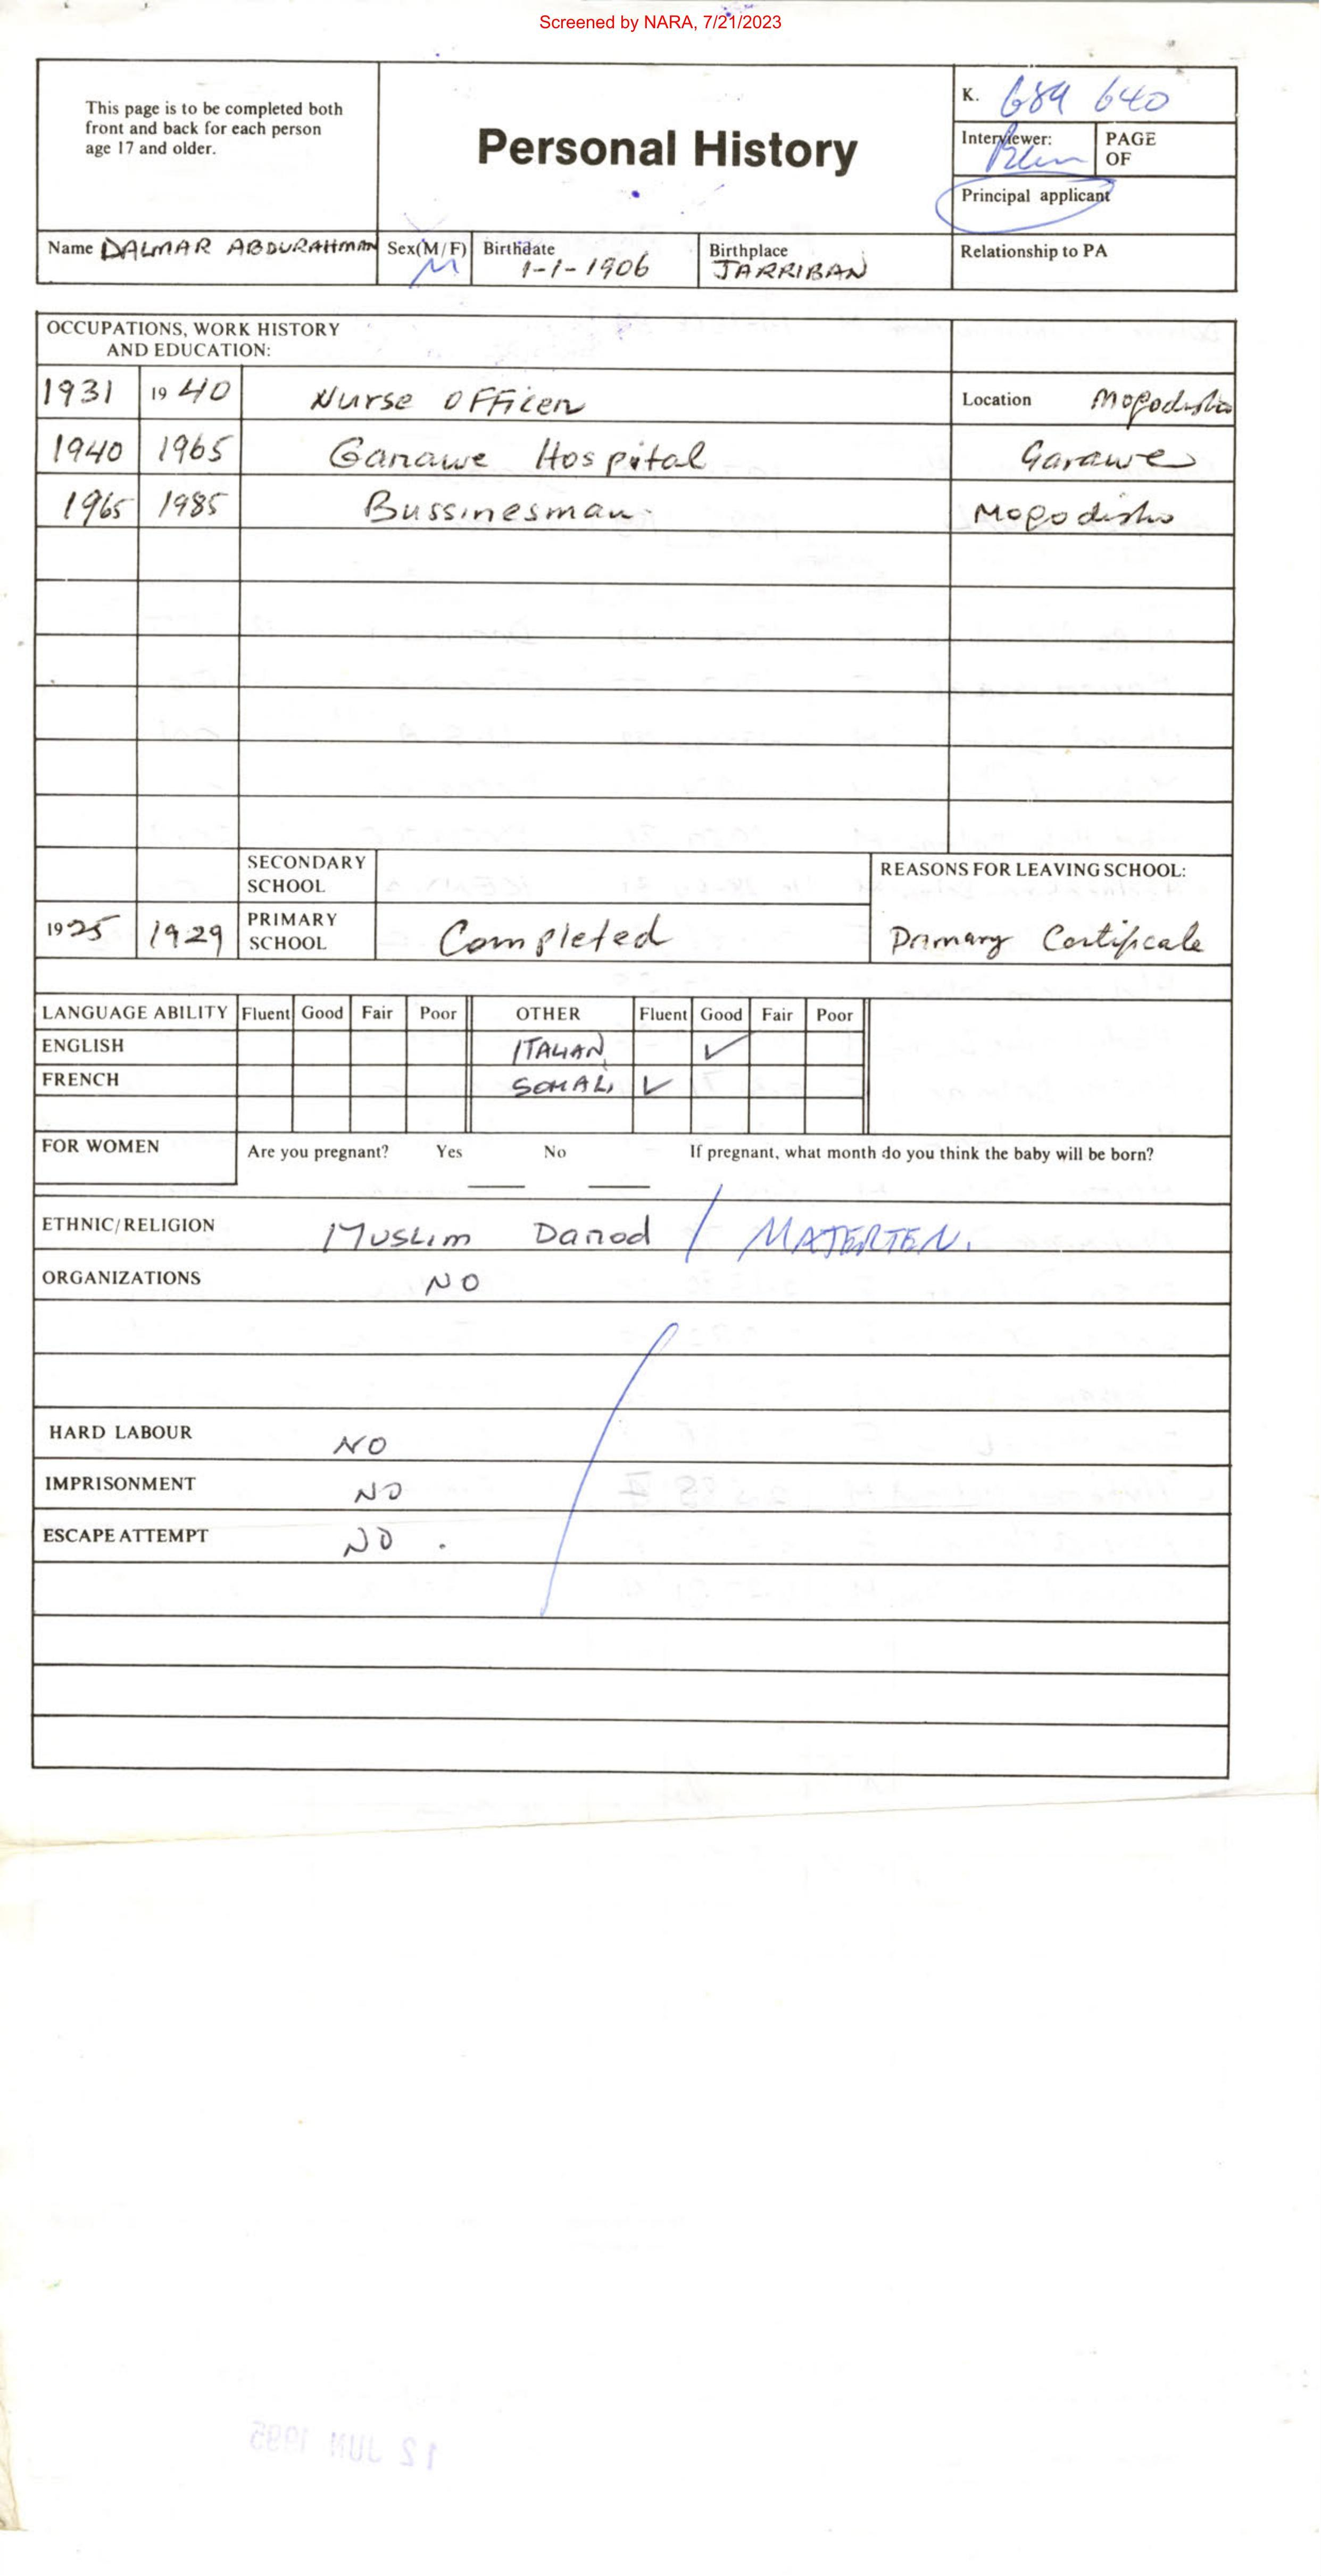 Screened by NARA, 7/21/2023
This page is to be completed both
front and back for each person
age 17 and older.
Personal History
K. 689 640
Interviewer:
PAGE
OF
Principal applicant
Name DALMAR ABDURAHMAN Sex(M/F) M Birthdate 1-1-1906 Birthplace JARRIBAN Relationship to PA
OCCUPATIONS, WORK HISTORY
AND EDUCATION:
1931 1940 Nurse OFFicer Location Mogodisho
1940 1965 Garawe Hospital Garawe
1965 1985 Bussinesman Mogodisho
SECONDARY
SCHOOL
REASONS FOR LEAVING SCHOOL:
1925 1929 PRIMARY
SCHOOL Completed Primary Certificate
LANGUAGE ABILITY Fluent Good Fair Poor OTHER Fluent Good Fair Poor
ENGLISH ITALIAN ✓
FRENCH SOMALI ✓
FOR WOMEN Are you pregnant? Yes No If pregnant, what month do you think the baby will be born?
ETHNIC/RELIGION Muslim Darod / MAJERTEN.
ORGANIZATIONS NO
HARD LABOUR NO
IMPRISONMENT NO
ESCAPE ATTEMPT NO.
12 JUN 1995